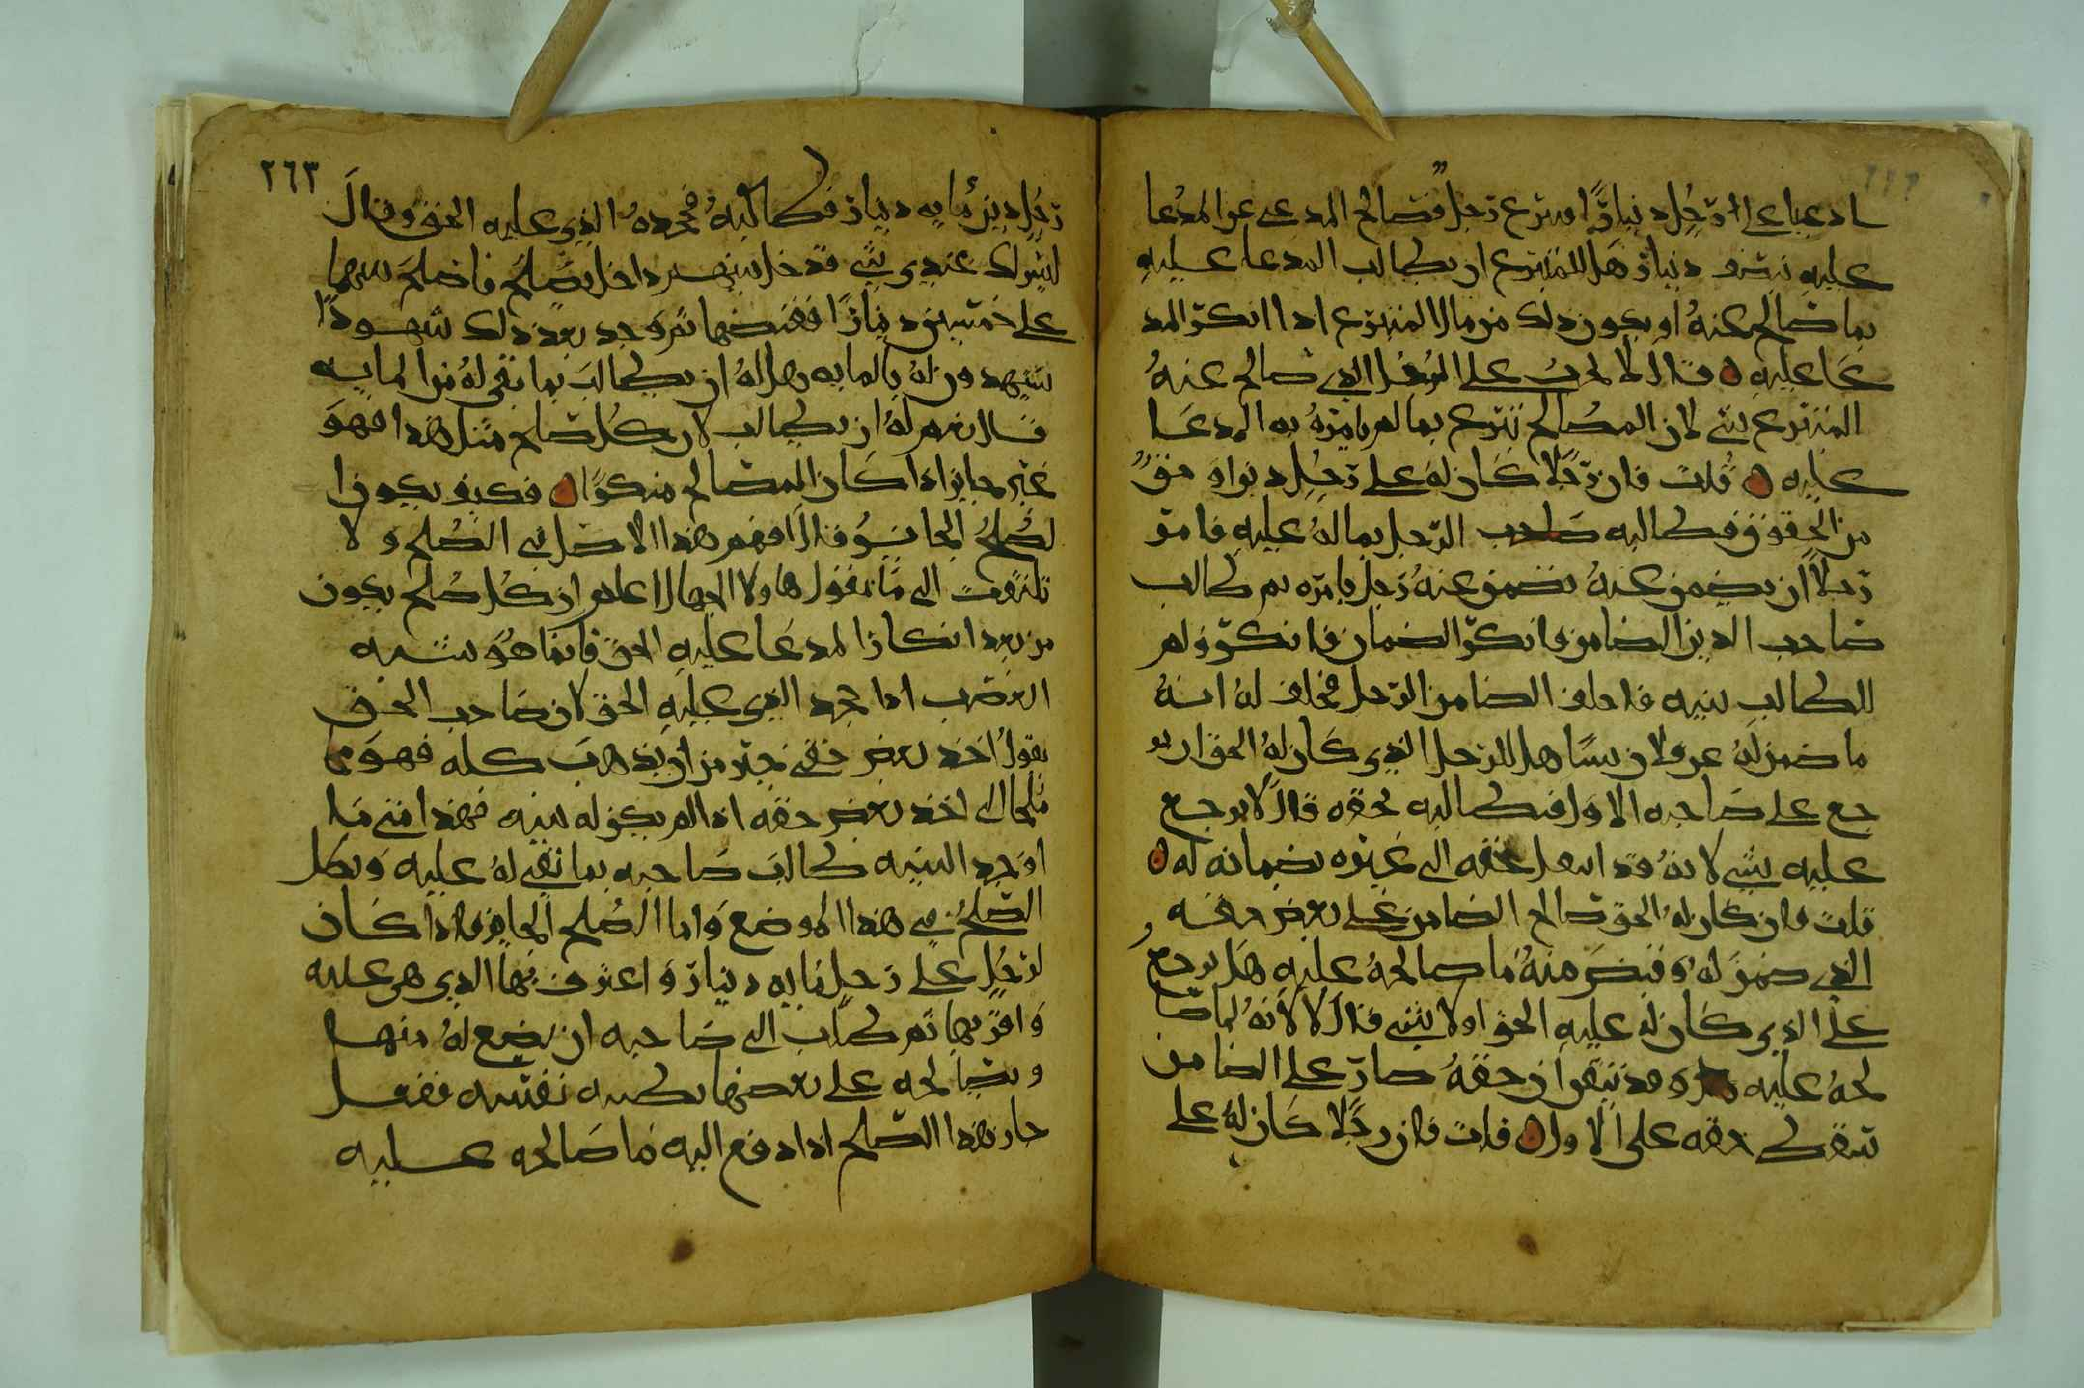 ادعيا على رجل دينارًا فتبرع رجل فصالح المدعي عن المدعا
عليه بنصف دينار هل للمتبرع ان يطالب المدعا عليه
بما صالح عنه او يكون ذلك من مال المتبرع اذا انكر المد
عا عليه ٥ قال لا يجب على الذي صالح عنه
المتبرع شي لان المصالح تبرع بما لم يامره به المدعا
عليه ٥ قلت فان رجلا كان له على رجل دين او حق
من الحقوق فطالبه صاحب الرجل بماله عليه فامر
رجلا ان يضمن عنه فضمن عنه رجل بامره ثم طالب
صاحب الدين الضامن فانكر الضمان فانكر ولم
للطالب بينه فاحلف الضامن الرجل فحلف له انه
ما ضمن له عن فلان شيًا هل للرجل الذي كان له الحق ان ير
جع على صاحبه الاول فيطالبه بحقه قال لا يرجع
عليه بشي لانه قد انتقل بحقه الى غيره بضمانه له ٥
قلت فان كان له الحق صالح الضامن على بعض حقه
الذي ضمن له وقبض منه ما صالحه عليه هل يرجع
على الذي كان له عليه الحق اولا بشي قال لا لانه لما صا
لحه عليه وقد تيقن ان حقه صار على الضامن
سقط حقه على الاول ٥ قلت فان رجلا كان له على
٢٦٣
رجل دين مايه دينار فطالبه فجحده الذي عليه الحق وقال
ليس لك عندي شي فدخل بينهم داخل بصلح فاصلح بينهما
على خمسين دينارًا فقبضها ثم وجد بعد ذلك شهودًا
يشهدون له بالمايه وهل له ان يطالب بما بقي له من المايه
قال نعم له ان يطالب لان كل صلح مثل هذا فهو
غير جايز اذا كان المصالح منكرًا ٥ فكيف يكون ا
لصلح الجايز قال افهم هذا الاصل في الصلح ولا
تلتفت الى ما يقول هاولا الجهال اعلم ان كل صلح يكون
من بعد انكار المدعا عليه الحق فانما هو شبه
الغصب اذا جحد الذي عليه الحق لان صاحب الحق
يقول اخذ بعض حقي خير من ان يذهب كله فهو م
لجا الى اخذ بعض حقه اذا لم يكن له بينه فهذا متى ما
اوجد البينه طالب صاحبه بما بقي له عليه وبطل
الصلح في هذا الموضع واما الصلح الجايز فاذا كان
لرجل على رجل مايه دينار واعترف بها الذي هي عليه
واقر بها ثم طلب الى صاحبه ان يضع له منها
ويصالحه على بعضها بطيبه نفسه ففعل
جاز هذا الصلح اذا دفع اليه ما صالحه عليه